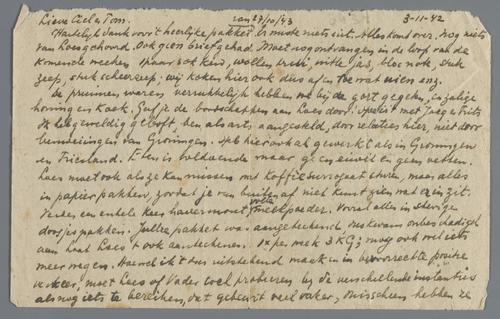 Lieve Ciel & Tom. van 27/10/43 3-11-42
Hartelijk dank voor 't heerlijke pakket. Er miste niets uit. Alles kond over. Nog niets
van Loes gehoord. Ook geen brief gehad. Moet nog ontvangen in de loop van de
komende weken: paar sokken, wollen trui, witte jas, bloc note, stuk
zeep, stuk scheerzeep. Wij koken hier ook dus af en toe wat uien enz.
De pruimen waren verrukkelijk hebben we bij de gort gegeten, en zalige
honing en kaas. Geef je de boodschappen aan Loes door.
Ik heb geweldig geboft, ben als arts aangesteld, door relaties hier, niet door
bemoeiingen van Groningen. Heb hier ook al gewerkt als in Groningen
en Friesland. Eten is voldoende maar geen eiwit en geen vetten.
Loes moet ook als ze kan missen wat koffiesurrogaat sturen, maar alles
in papier pakken, zodat je van buiten af niet kunt zien wat er in zit.
Verder een enkele keer havermout, volle melkpoeder. Vooral alles in stevige
doosjes pakken. Jullie pakket was aangetekend, dus kwam onbeschadigd
aan laat Loes 't ook aantekenen. 1x per week 3 KG; mag ook wel iets
meer wegen. Hoewel ik 't dus uitstekend maak en in bevoorrechte positie
verkeer, moet Loes of Vader toch proberen bij de verschillende instanties
alsnog iets te bereiken, dat gebeurt veel vaker, misschien hebben ze